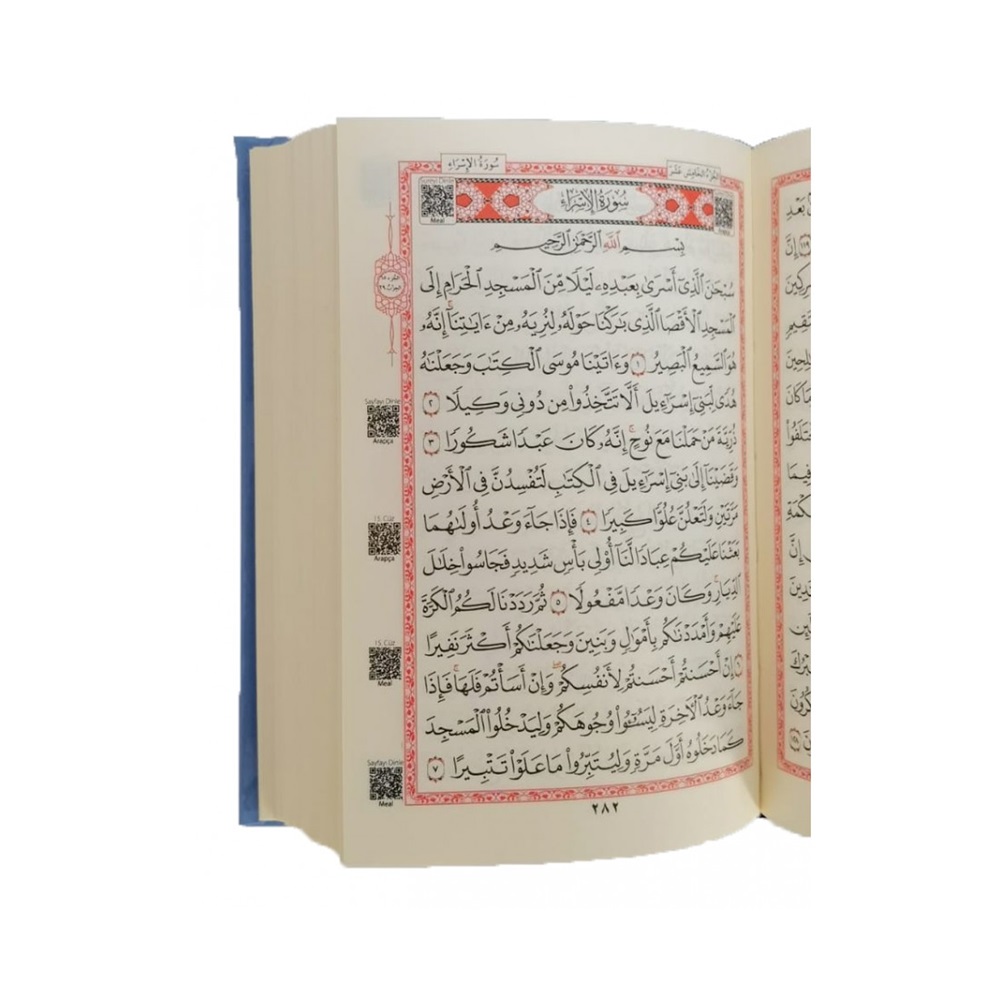 سُورَةُ الإِسْرَاءِ
الجُزْءُ الخَامِسَ عَشَرَ
Sayfayı Dinle
Meal
سُورَةُ الإِسْرَاءِ
بِسْمِ اللَّهِ الرَّحْمَٰنِ الرَّحِيمِ
سُبْحَٰنَ الَّذِي أَسْرَىٰ بِعَبْدِهِ لَيْلًا مِّنَ الْمَسْجِدِ الْحَرَامِ إِلَى
الْمَسْجِدِ الْأَقْصَا الَّذِي بَٰرَكْنَا حَوْلَهُ لِنُرِيَهُ مِنْ ءَايَٰتِنَا ۚ إِنَّهُ
هُوَ السَّمِيعُ الْبَصِيرُ ١ وَءَاتَيْنَا مُوسَى الْكِتَٰبَ وَجَعَلْنَٰهُ
هُدًى لِّبَنِي إِسْرَٰٓءِيلَ أَلَّا تَتَّخِذُوا۟ مِن دُونِي وَكِيلًا ٢
ذُرِّيَّةَ مَنْ حَمَلْنَا مَعَ نُوحٍ ۚ إِنَّهُ كَانَ عَبْدًا شَكُورًا ٣
وَقَضَيْنَآ إِلَىٰ بَنِي إِسْرَٰٓءِيلَ فِي الْكِتَٰبِ لَتُفْسِدُنَّ فِي الْأَرْضِ
مَرَّتَيْنِ وَلَتَعْلُنَّ عُلُوًّا كَبِيرًا ٤ فَإِذَا جَآءَ وَعْدُ أُولَىٰهُمَا
بَعَثْنَا عَلَيْكُمْ عِبَادًا لَّنَآ أُو۟لِي بَأْسٍ شَدِيدٍ فَجَاسُوا۟ خِلَٰلَ
الدِّيَارِ ۚ وَكَانَ وَعْدًا مَّفْعُولًا ٥ ثُمَّ رَدَدْنَا لَكُمُ الْكَرَّةَ
عَلَيْهِمْ وَأَمْدَدْنَٰكُم بِأَمْوَٰلٍ وَبَنِينَ وَجَعَلْنَٰكُمْ أَكْثَرَ نَفِيرًا
٦ إِنْ أَحْسَنتُمْ أَحْسَنتُمْ لِأَنفُسِكُمْ ۖ وَإِنْ أَسَأْتُمْ فَلَهَا ۚ فَإِذَا
جَآءَ وَعْدُ الْءَاخِرَةِ لِيَسُۥٓـُٔوا۟ وُجُوهَكُمْ وَلِيَدْخُلُوا۟ الْمَسْجِدَ
كَمَا دَخَلُوهُ أَوَّلَ مَرَّةٍ وَلِيُتَبِّرُوا۟ مَا عَلَوْا۟ تَتْبِيرًا ٧
٢٨٢
Sayfayı Dinle
Arapça
15.Cüz
Arapça
15.Cüz
Meal
Sayfayı Dinle
Meal